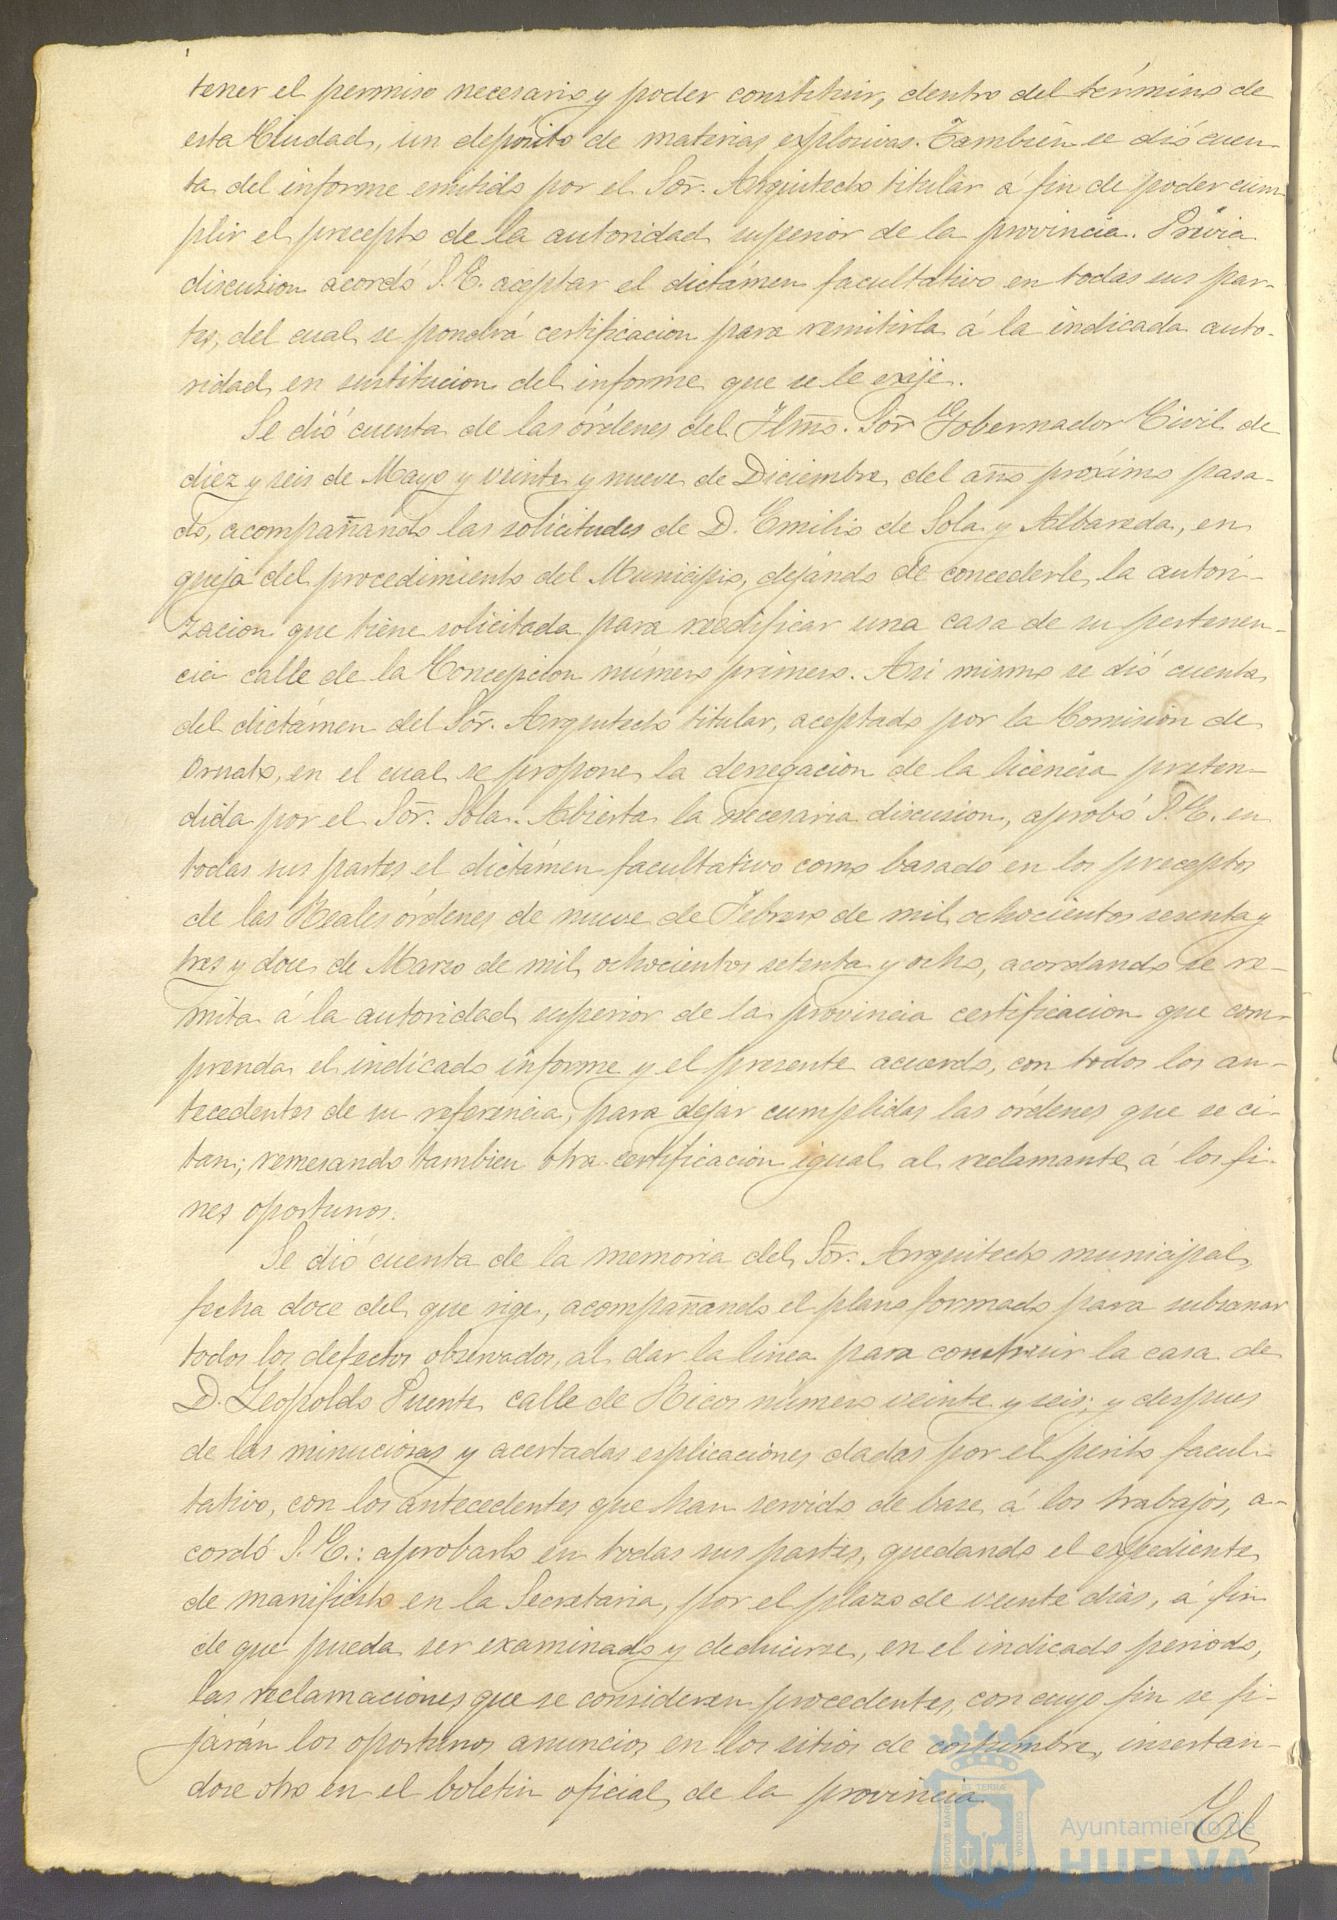 tener el permiso necesario y poder constituir, dentro del término de
esta Ciudad, un depósito de materias explosivas. También se dió cuen-
ta del informe emitido por el Sor. Arquitecto titular á fin de poder cum-
plir el precepto de la autoridad superior de la provincia. Prévia
discusion acordó S. E. aceptar el dictámen facultativo en todas sus par-
tes, del cual se pondrá certificacion para remitirla á la indicada auto-
ridad en sustitucion del informe que se le exije.
Se dió cuenta de las órdenes del Ilmo. Sor Gobernador Civil de
diez y seis de Mayo y veinte y nueve de Diciembre del año próximo pasa-
do, acompañando las solicitudes de D. Emilio de Sola y Albareda, en
queja del procedimiento del Municipio, dejándo de concederle la autori-
zacion que tiene solicitada para reedificar una casa de su pertenen-
cia calle de la Concepcion número primero. Asi mismo se dió cuenta
del dictámen del Sor. Arquitecto titular, aceptado por la Comision de
Ornato, en el cual se propone la denegacion de la licencia preten-
dida por el Sor. Sola. Abierta la necesaria discusion, aprobó S. E. en
todas sus partes el dictámen facultativo como basado en los preceptos
de las Reales órdenes de nueve de Febrero de mil ochocientos sesenta y
tres y doce de Marzo de mil ochocientos setenta y ocho, acordando se re-
mita á la autoridad superior de la provincia certificacion que com-
prenda el indicado informe y el presente acuerdo, con todos los an-
tecedentes de su referencia, para dejar cumplidas las órdenes que se ci-
tan; remesando tambien otra certificacion igual al reclamante á los fi-
nes oportunos.
Se dió cuenta de la memoria del Sor. Arquitecto municipal,
fecha doce del que rige, acompañando el plano formado para subsanar
todos los defectos observados, al dar la linea para construir la casa de
D. Leopoldo Puente calle de Ricos número veinte y seis; y despues
de las minuciosas y acertadas esplicaciónes dadas por el perito facul-
tativo, con los antecedentes que han servido de base á los trabajos, a-
cordó S. E.: aprobarlo en todas sus partes, quedando el expediente
de manifiesto en la Secretaria, por el plazo de veinte dias, á fin
de que pueda ser examinado y deducirse, en el indicado periodo,
las reclamaciones que se consideren procedentes, con cuyo fin se fi-
jarán los oportunos anuncios en los sitios de costumbre, insertán-
dose otro en el boletin oficial de la provincia.
El
Ayuntamiento de
HUELVA